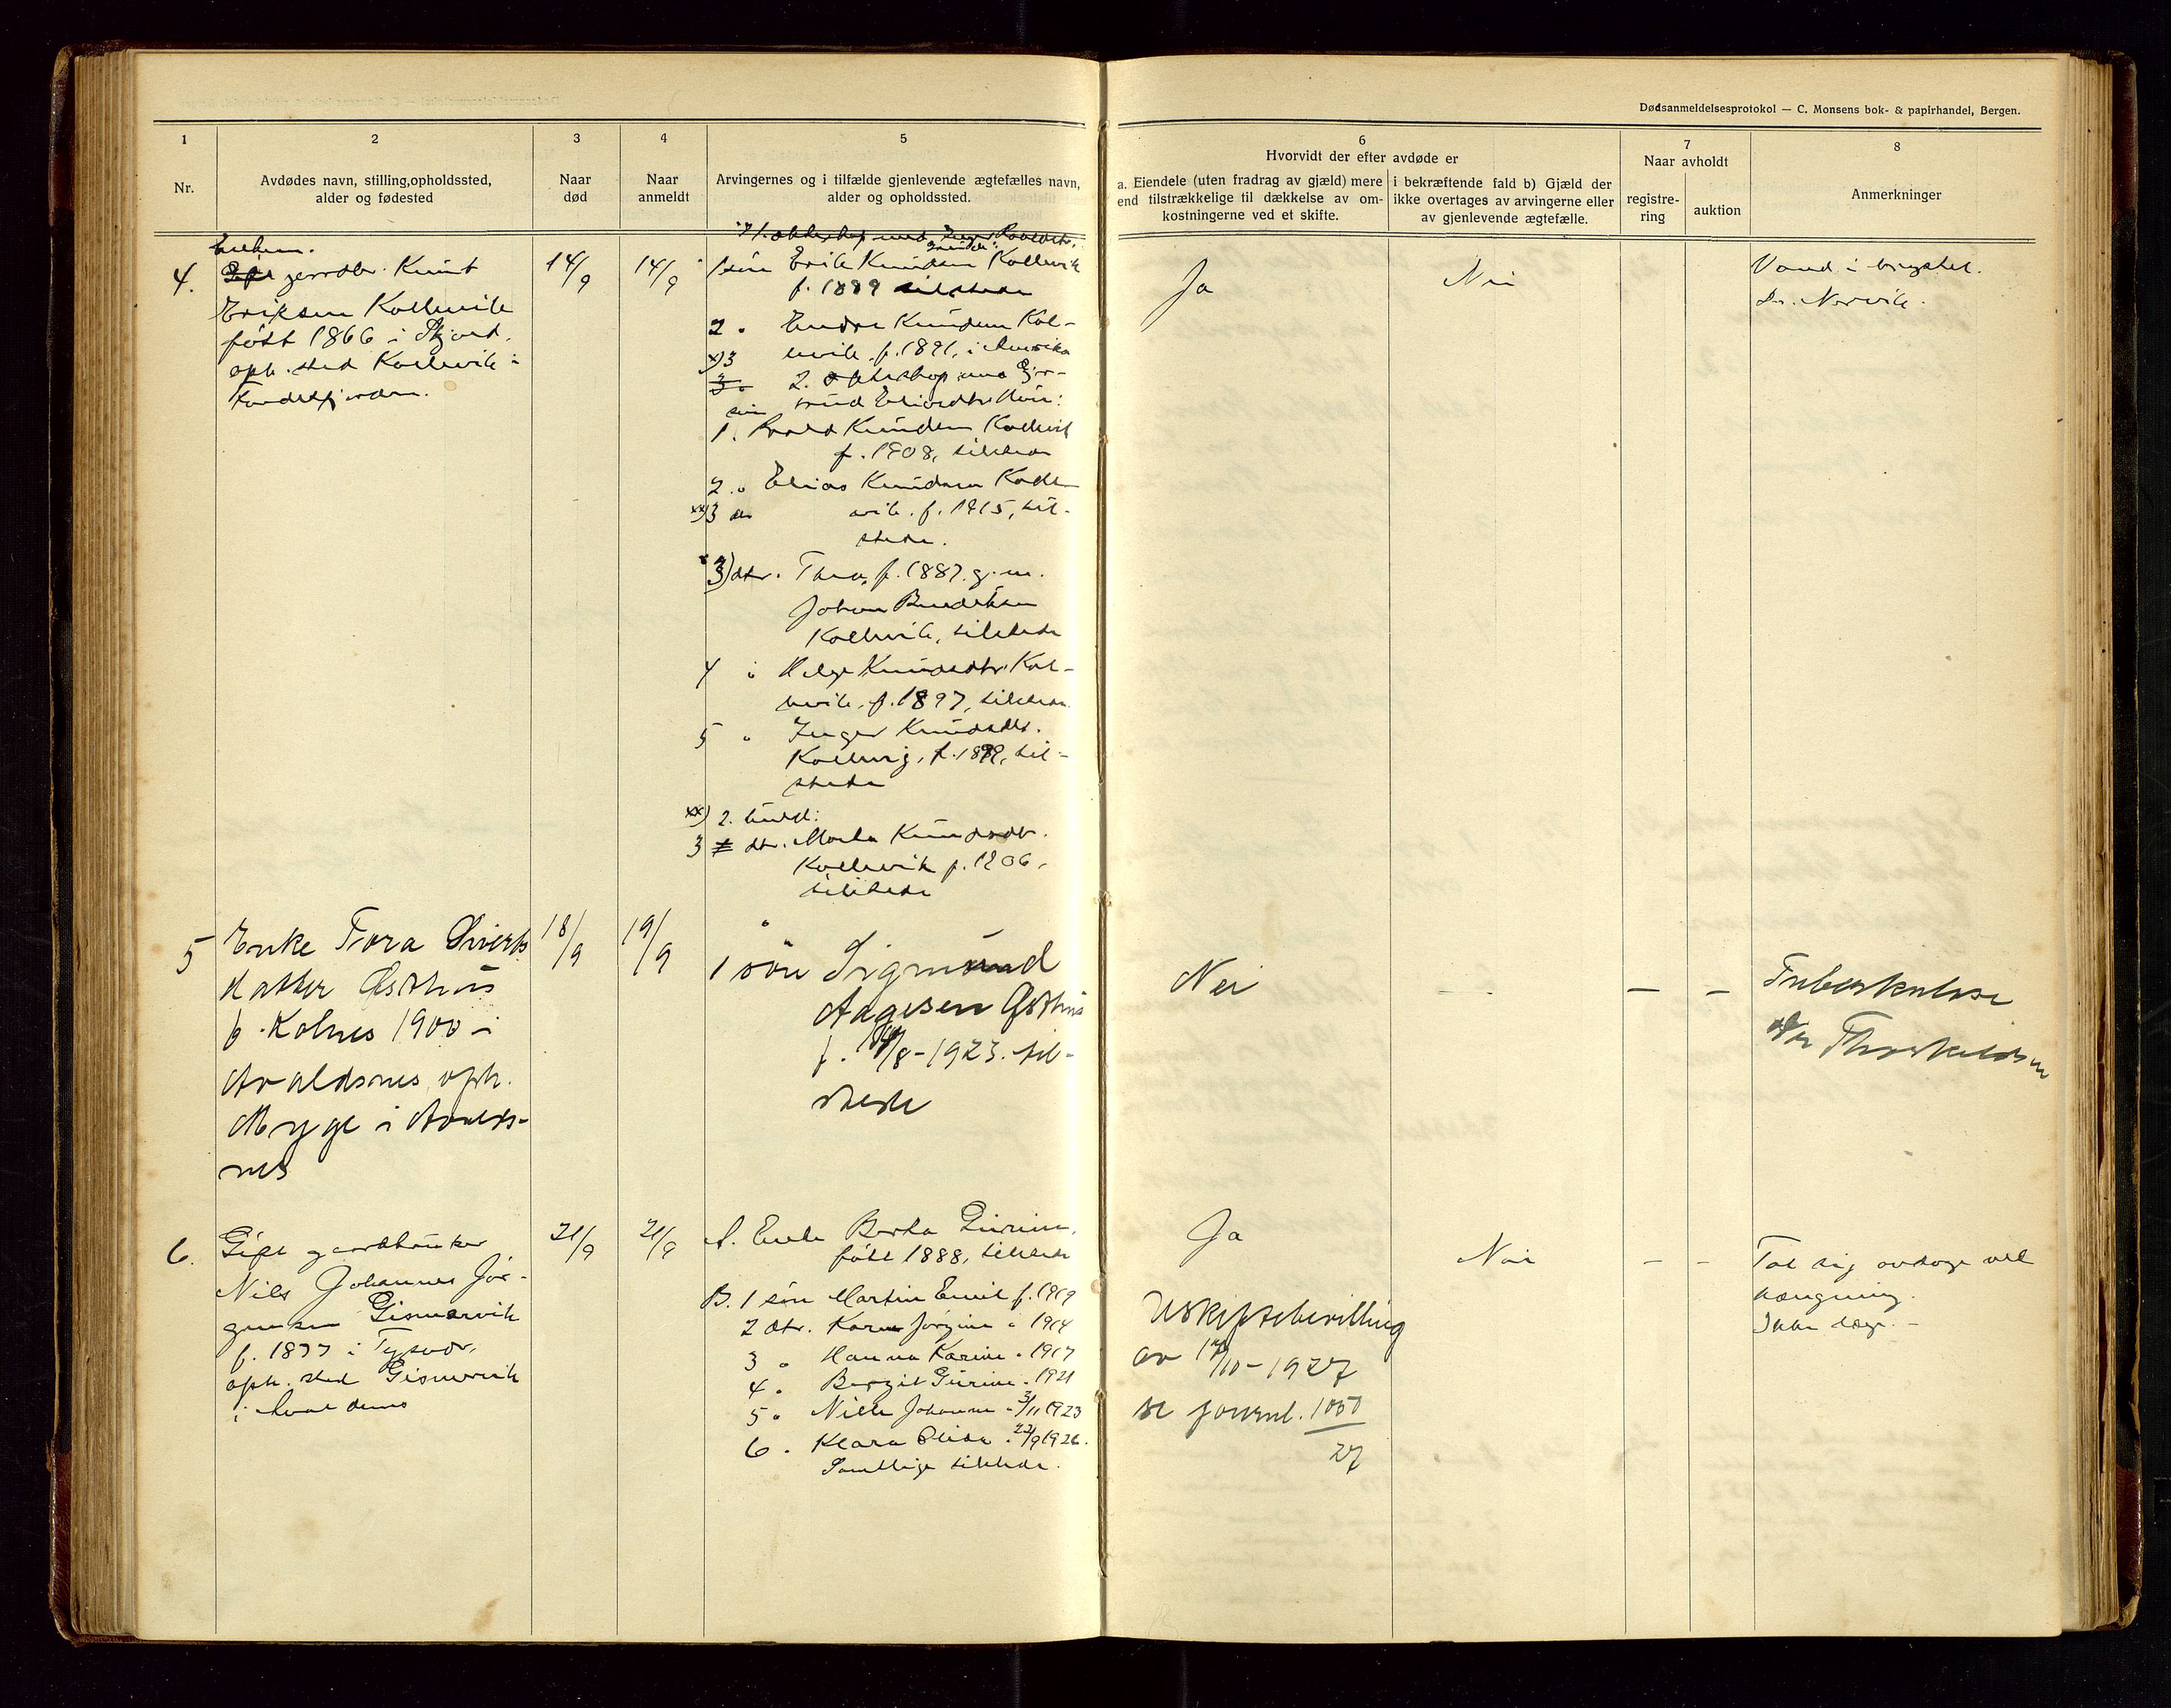 Dødsanmeldelsesprotokol — C. Monsens bok- & papirhandel, Bergen.
1
Nr.
2
Avdødes navn, stilling, opholdssted,
alder og fødested
3
Naar
død
4
Naar
anmeldt
5
Arvingernes og i tilfælde gjenlevende ægtefælles navn,
alder og opholdssted.
6
Hvorvidt der efter avdøde er
a. Eiendele (uten fradrag av gjæld) mere
end tilstrækkelige til dækkelse av om-
kostningerne ved et skifte.
i bekræftende fald b) Gjæld der
ikke overtages av arvingerne eller
av gjenlevende ægtefælle.
7
Naar avholdt
registre-
ring
auktion
8
Anmerkninger
4.
Enkem.
gaardbr. Knut
Eriksen Kollevik
født 1866 i Skjold,
oph. sted Kollevik i
14/9
14/9
1 søn Erik Knudsen Kollevik
f. 1889 tilstede
2 " Endre Knudsen Kol-
levik f. 1891, i Amerika
x) 3
2. ekteskap med Gjer-
trud Eliasdtr.
søn
1. Knudsen Kollevik
f. 1908, tilstede
2. " Elias Knudsen Kolle-
vik. f. 1915, til-
xx) 3 dtr
stede.
x 3) dtr. Thea, f. 1887. g. m.
Johan
Kollevik, tilstede
4 " Helga Knudsdtr. Kol-
levik, f. 1897, tilstede
5 " Inger Knudsdtr.
Kollevig, f. 1899, til-
stede
xx) 2. kuld:
3 dtr. Marta Knudsdtr.
Kollevik f. 1906,
tilstede
Ja
Nei
Vand i brystet.
Dr. Norvik.
5
Enke Tora Sivers
datter Østhus
f. Kolnes 1900 i
Avaldsnes oph.
Myge i Avalds-
nes
18/9
19/9
1 søn Sigmund
Aagesen Østhus
f. /8-1923. til-
stede
Nei
— — —
Tuberkulose
Dr Thorkildsen
6.
Gift gaardbruker
Nils Johannes Jør-
gensen Gismarvik
f. 1877 i Tysvær,
oph. sted Gismarvik
i Avaldsnes
21/9
21/9
A. Enke Berta Gurine,
født 1888, tilstede
B. 1 søn Martin Emil f. 1919
2 dtr. Karen Jørgine " 1914
3 " Hanna Karine " 1917
4 " Bergit Gurine " 1921
5 " Nille Johanne " 3/11 1923
6 " Klara Elise " 22/9 1926.
Samtlige tilstede.
Ja
Uskiftebevilling
av /10-1927
se journal. 1050
27
Nei
— —
Tok sig avdage ved
hængning.
Ikke læge. —